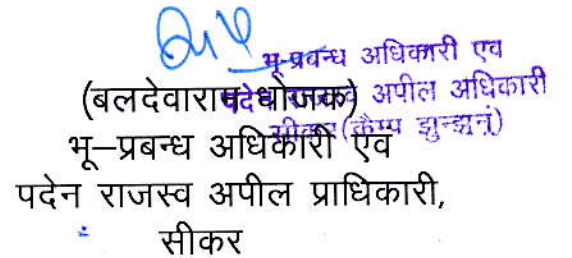 भू-प्रबन्ध अधिकारी एव
पदेन राजस्व अपील अधिकारी
सीकर (कैम्प झुन्झुनूं)
(बलदेवाराम धोजक)
भू–प्रबन्ध अधिकारी एवं
पदेन राजस्व अपील प्राधिकारी,
सीकर